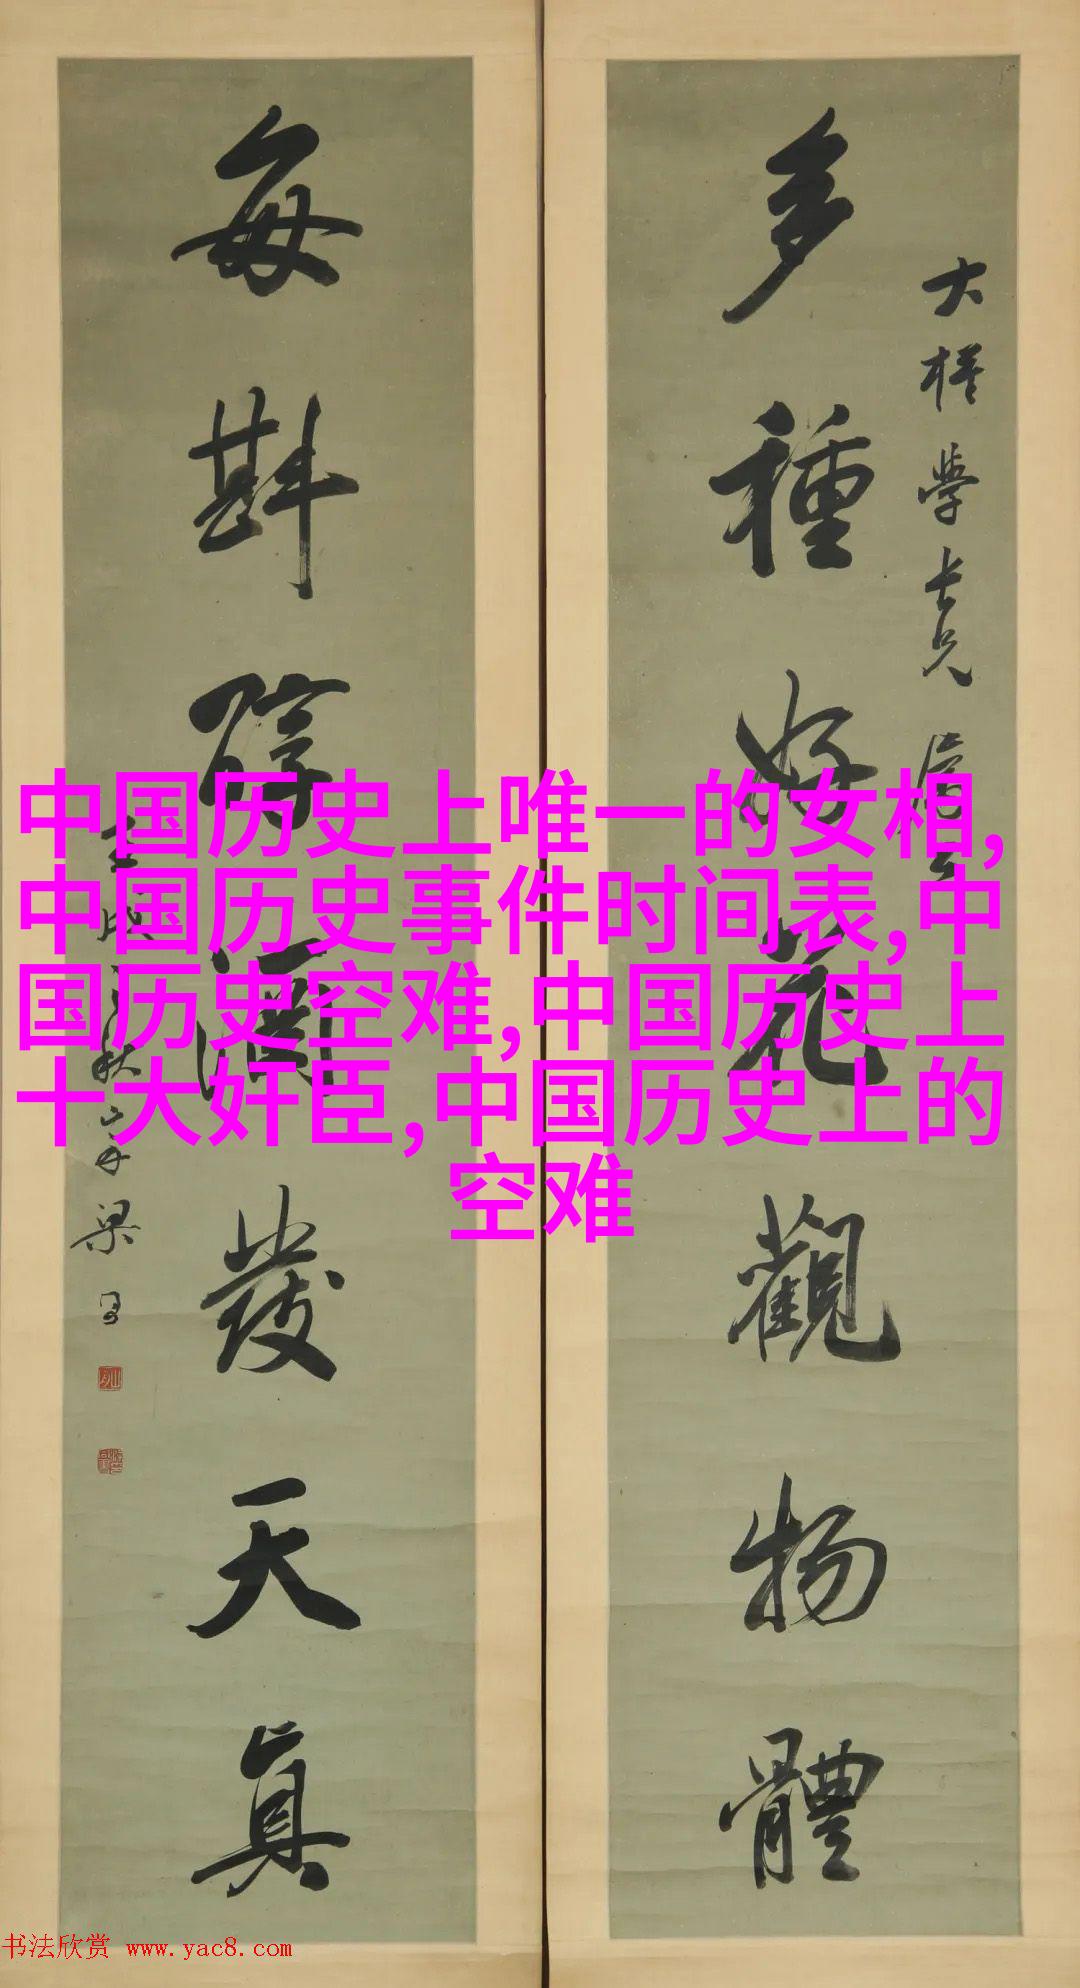 多種好花觀物體
大樁學士兄屬
每斟醇酒發天真
秋
梁
中国历史上唯一的女相,
中国历史事件时间表,中
国历史空难,中国历史上
十大奸臣,中国历史上的
空难
书法欣赏 www.yac8.com